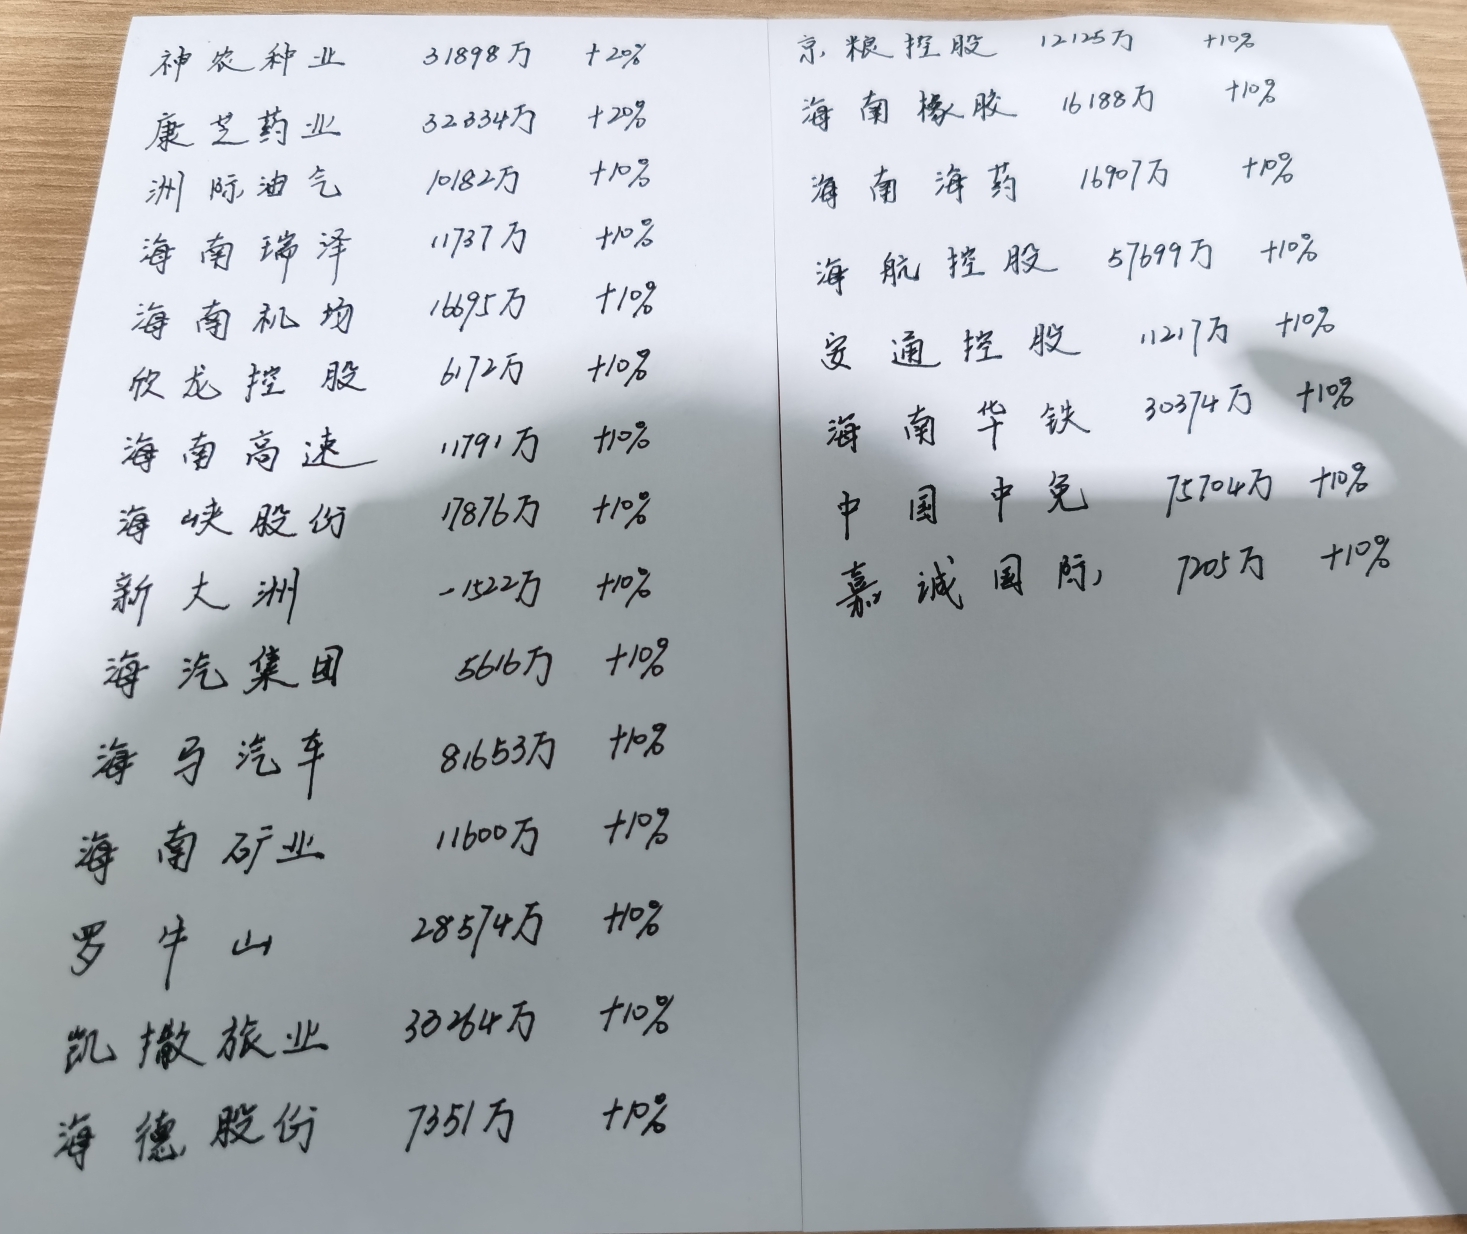 神农种业 31898万 +20%
康芝药业 32334万 +20%
洲际油气 10182万 +10%
海南瑞泽 11737万 +10%
海南机场 16695万 +10%
欣龙控股 6172万 +10%
海南高速 11791万 +10%
海峡股份 17876万 +10%
新大洲 -1522万 +10%
海汽集团 5616万 +10%
海马汽车 81653万 +10%
海南矿业 11600万 +10%
罗牛山 28574万 +10%
凯撒旅业 33264万 +10%
海德股份 7351万 +10%
京粮控股 12125万 +10%
海南橡胶 16188万 +10%
海南海药 16907万 +10%
海航控股 57699万 +10%
安通控股 11217万 +10%
海南华铁 30374万 +10%
中国中免 75704万 +10%
嘉诚国际 7205万 +10%